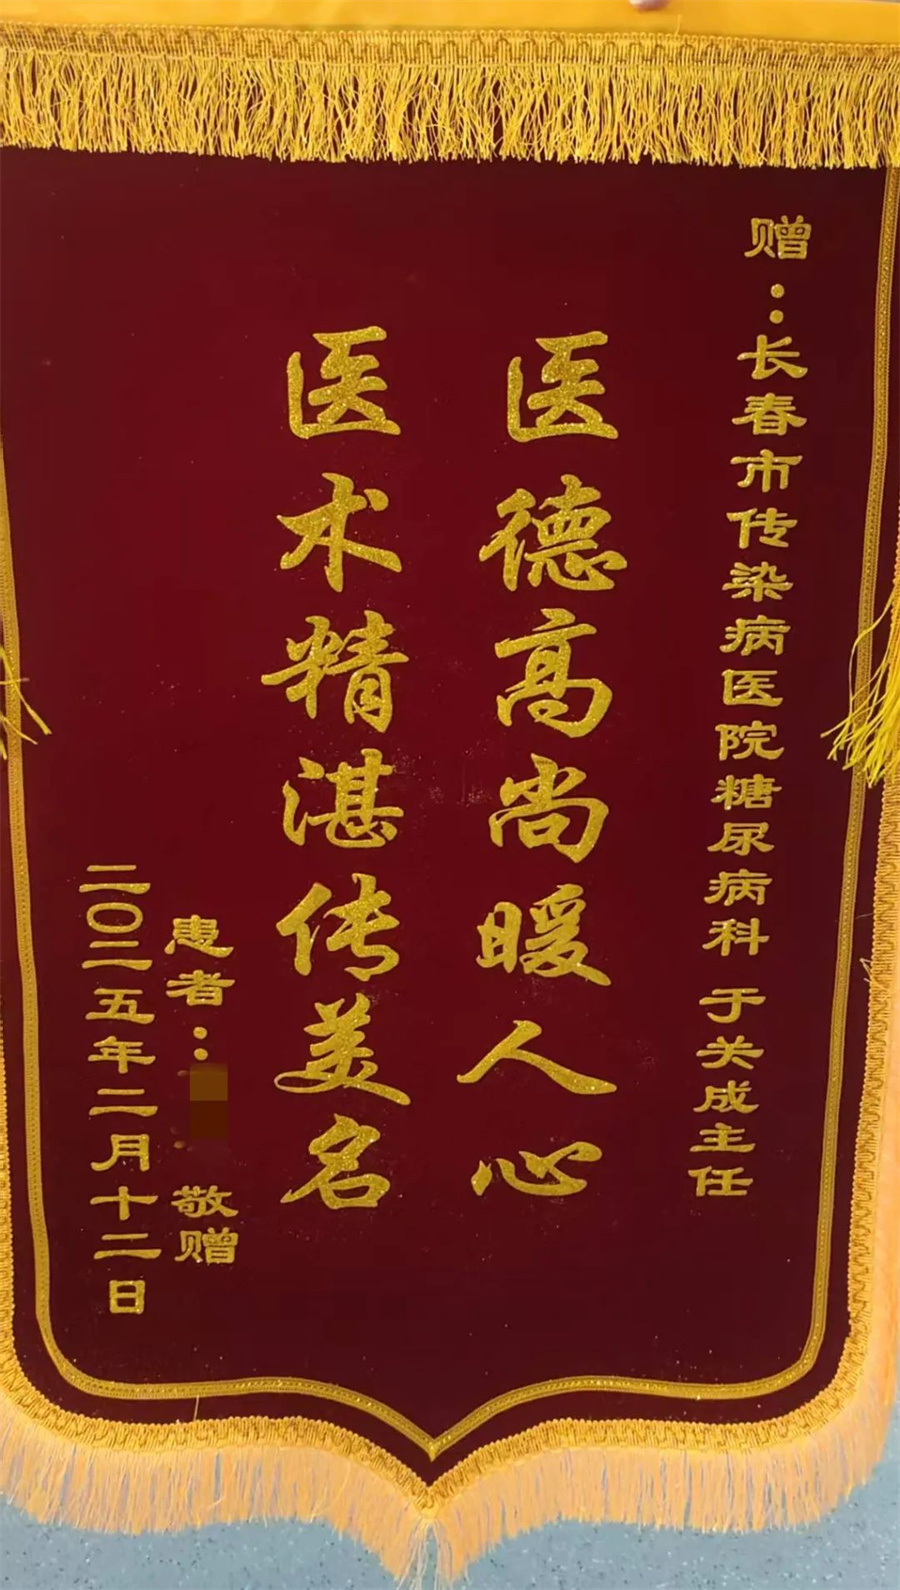 赠：长春市传染病医院糖尿病科 于关成主任
医德高尚暖人心
医术精湛传美名
患者： 敬赠
二〇二五年二月十二日